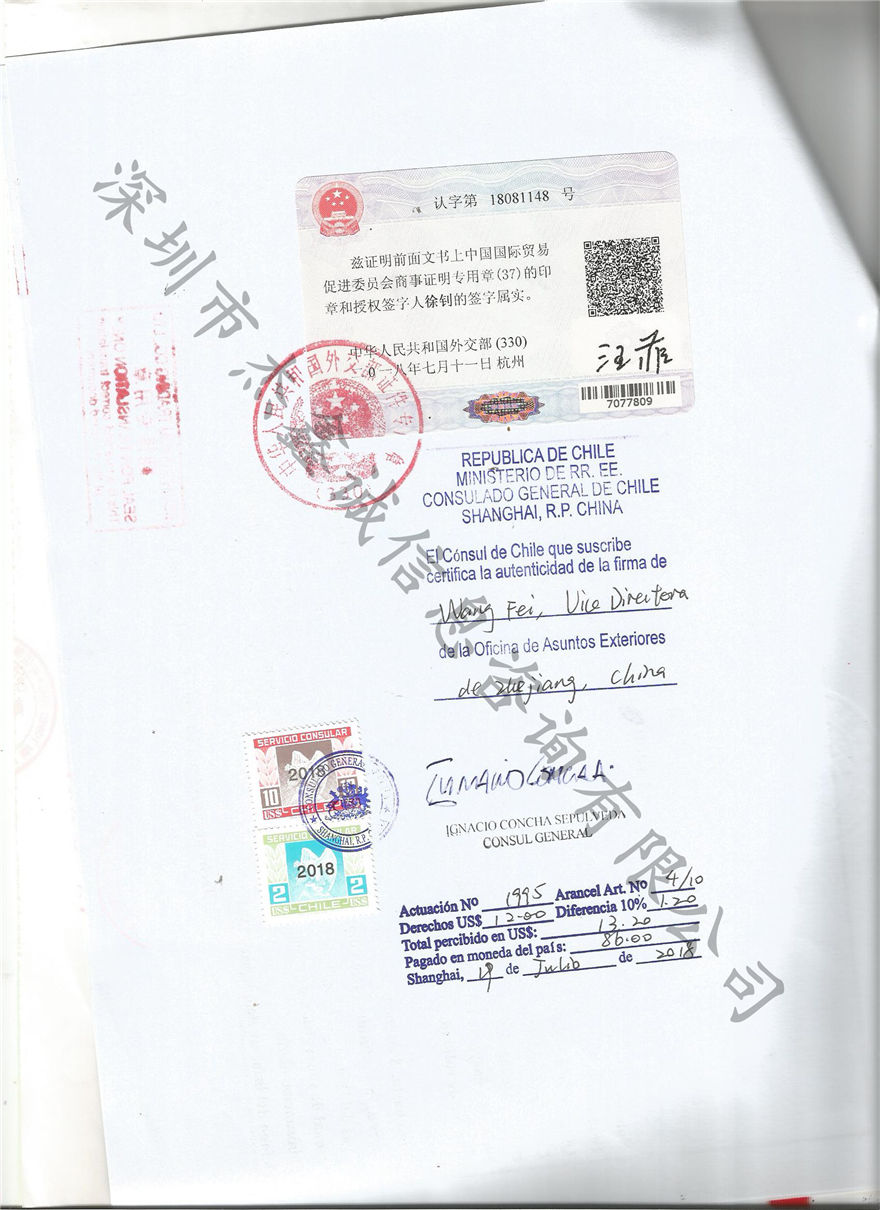 认字第 18081148 号
兹证明前面文书上中国国际贸易
促进委员会商事证明专用章(37)的印
章和授权签字人徐钊的签字属实。
中华人民共和国外交部(330)
〇一八年七月十一日 杭州
汪菲
7077809
中华人民共和国外交部证件专 章
(330)
REPUBLICA DE CHILE
MINISTERIO DE RR. EE.
CONSULADO GENERAL DE CHILE
SHANGHAI, R.P. CHINA
El Cónsul de Chile que suscribe
certifica la autenticidad de la firma de
Wang Fei, Vice Directora
de la Oficina de Asuntos Exteriores
de Zhejiang, China
IGNACIO CONCHA SEPULVEDA
CONSUL GENERAL
SERVICIO CONSULAR
2018
10
US$ CHILE
CONSULADO GENERAL
SHANGHAI, R.P.
SERVICIO CONSULAR
2018
2 2
US$ CHILE US$
Actuación No 1995 Arancel Art. No 4/10
Derechos US$ 12.00 Diferencia 10% 1.20
Total percibido en US$: 13.20
Pagado en moneda del país: 86.00
Shanghai, 19 de Julio de 2018
深圳市杰鑫诚信息咨询有限公司